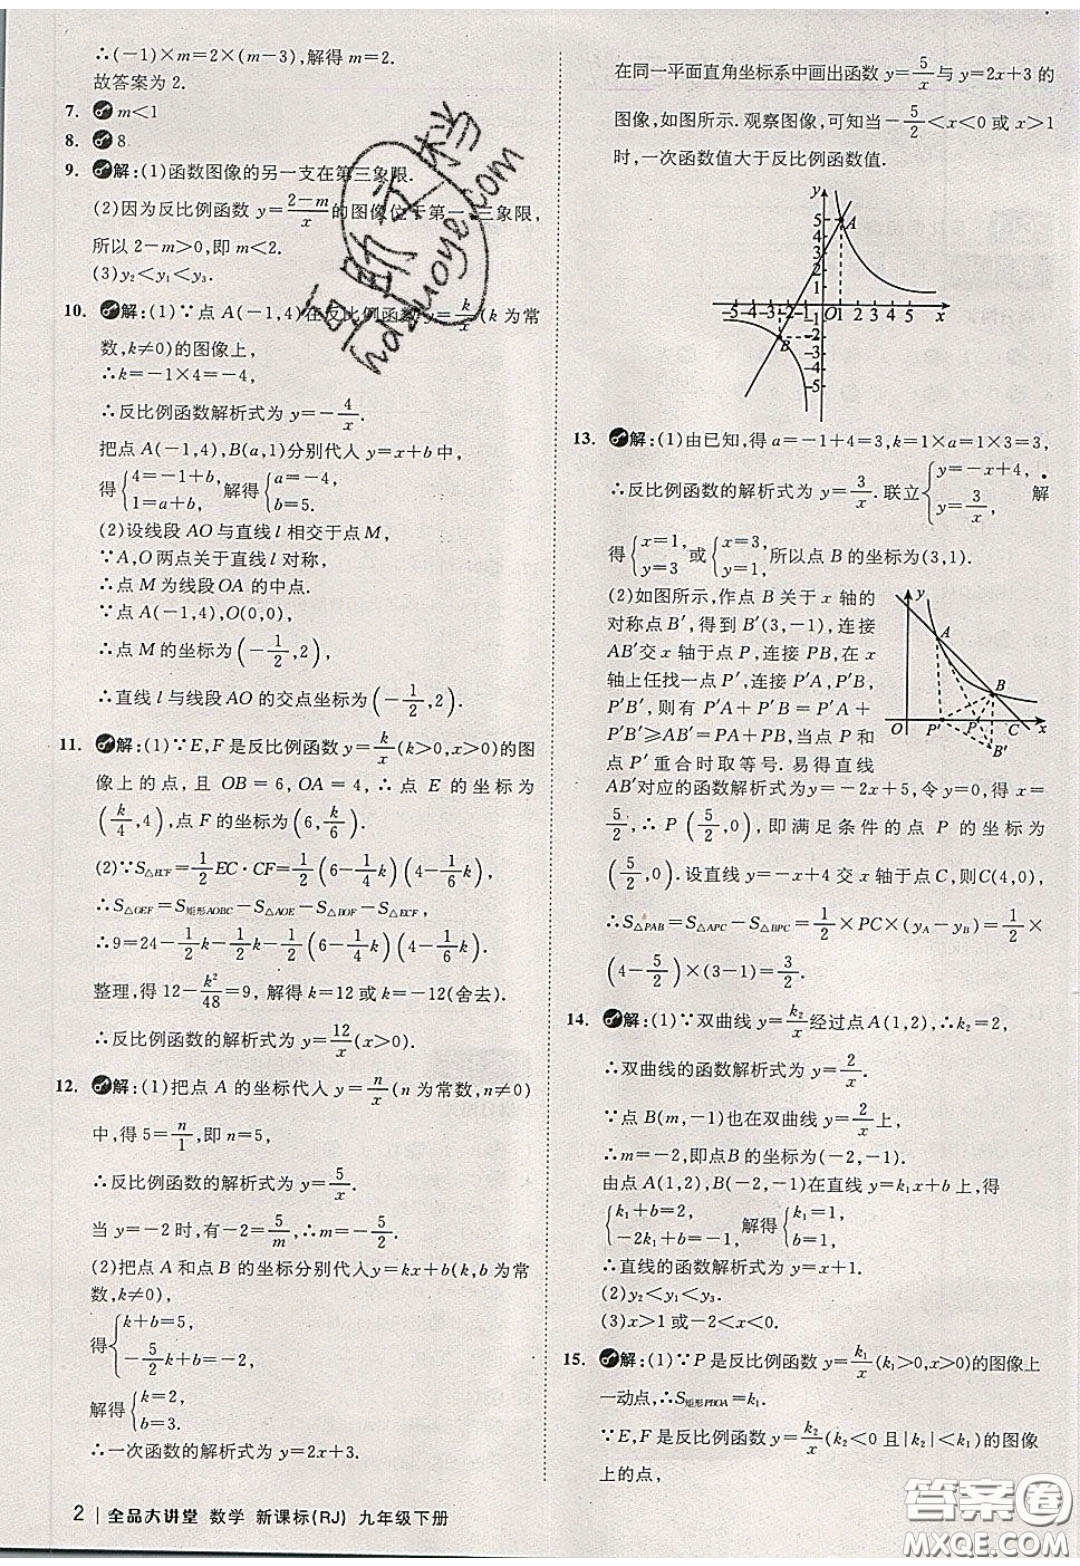 ∴(-1)×m=2×(m-3),解得 m=2.
故答案为 2.
7. m<1
8. 8
9. 解:(1)函数图像的另一支在第三象限.
(2)因为反比例函数 y=(2-m)/x 的图像位于第一、三象限,
所以 2-m>0,即 m<2.
(3)y₂<y₁<y₃.
10. 解:(1)∵点 A(-1,4)在反比例函数 y=k/x (k 为常
数,k≠0)的图像上,
∴k=-1×4=-4,
∴反比例函数解析式为 y=-4/x.
把点 A(-1,4),B(a,1)分别代入 y=x+b 中,
得{4=-1+b, 1=a+b, 解得{a=-4, b=5.
(2)设线段 AO 与直线 l 相交于点 M,
∵A,O 两点关于直线 l 对称,
∴点 M 为线段 OA 的中点.
∵点 A(-1,4),O(0,0),
∴点 M 的坐标为(-1/2,2),
∴直线 l 与线段 AO 的交点坐标为(-1/2,2).
11. 解:(1)∵E,F 是反比例函数 y=k/x(k>0,x>0)的图
像上的点,且 OB=6,OA=4,∴点 E 的坐标为
(k/4,4),点 F 的坐标为(6,k/6).
(2)∵S△ECF=1/2EC·CF=1/2(6-1/4k)(4-1/6k),
∴S△OEF=S矩形AOBC-S△AOE-S△BOF-S△ECF,
∴9=24-1/2k-1/2k-1/2(6-1/4k)(4-1/6k).
整理,得 12-k²/48=9, 解得 k=12 或 k=-12(舍去).
∴反比例函数的解析式为 y=12/x(x>0).
12. 解:(1)把点 A 的坐标代入 y=n/x(n 为常数,n≠0)
中,得 5=n/1,即 n=5,
∴反比例函数的解析式为 y=5/x.
当 y=-2 时,有-2=5/m,∴m=-5/2.
(2)把点 A 和点 B 的坐标分别代入 y=kx+b(k,b 为常
数,k≠0),
得{k+b=5, -5/2k+b=-2,
解得{k=2, b=3.
∴一次函数的解析式为 y=2x+3.
2 | 全品大讲堂 数学 新课标(RJ) 九年级下册
在同一平面直角坐标系中画出函数 y=5/x 与 y=2x+3 的
图像,如图所示.观察图像,可知当-5/2<x<0 或 x>1
时,一次函数值大于反比例函数值.
y
5
4
3
2
1
A
-5-4-3-2-1 O 1 2 3 4 5 x
B
-2
-3
-4
-5
13. 解:(1)由已知,得 a=-1+4=3,k=1×a=1×3=3,
∴反比例函数的解析式为 y=3/x.联立{y=-x+4, y=3/x, 解
得{x=1, y=3 或{x=3, y=1, 所以点 B 的坐标为(3,1).
(2)如图所示,作点 B 关于 x 轴的
对称点 B′,得到 B′(3,-1),连接
AB′交 x 轴于点 P,连接 PB,在 x
轴上任找一点 P′,连接 P′A,P′B,
P′B′,则有 P′A+P′B=P′A+
P′B′≥AB′=PA+PB,当点 P 和
点 P′重合时取等号.易得直线
y
A
B
O P′ P C x
B′
AB′对应的函数解析式为 y=-2x+5,令 y=0,得 x=
5/2,∴P(5/2,0),即满足条件的点 P 的坐标为
(5/2,0).设直线 y=-x+4 交 x 轴于点 C,则 C(4,0),
∴S△PAB=S△APC-S△BPC=1/2×PC×(yA-yB)=1/2×
(4-5/2)×(3-1)=3/2.
14. 解:(1)∵双曲线 y=k₂/x 经过点 A(1,2),∴k₂=2,
∴双曲线的函数解析式为 y=2/x.
∵点 B(m,-1)也在双曲线 y=2/x 上,
∴m=-2,即点 B 的坐标为(-2,-1).
由点 A(1,2),B(-2,-1)在直线 y=k₁x+b 上,得
{k₁+b=2, -2k₁+b=-1, 解得{k₁=1, b=1,
∴直线的函数解析式为 y=x+1.
(2)y₂<y₁<y₃.
(3)x>1 或-2<x<0.
15. 解:(1)∵P 是反比例函数 y=k₁/x(k₁>0,x>0)的图像上
一动点,∴S矩形PBOA=k₁.
∵E,F 是反比例函数 y=k₂/x(k₂<0 且|k₂|<k₁)的图像
上的点,
答案圈
MXQE.COM